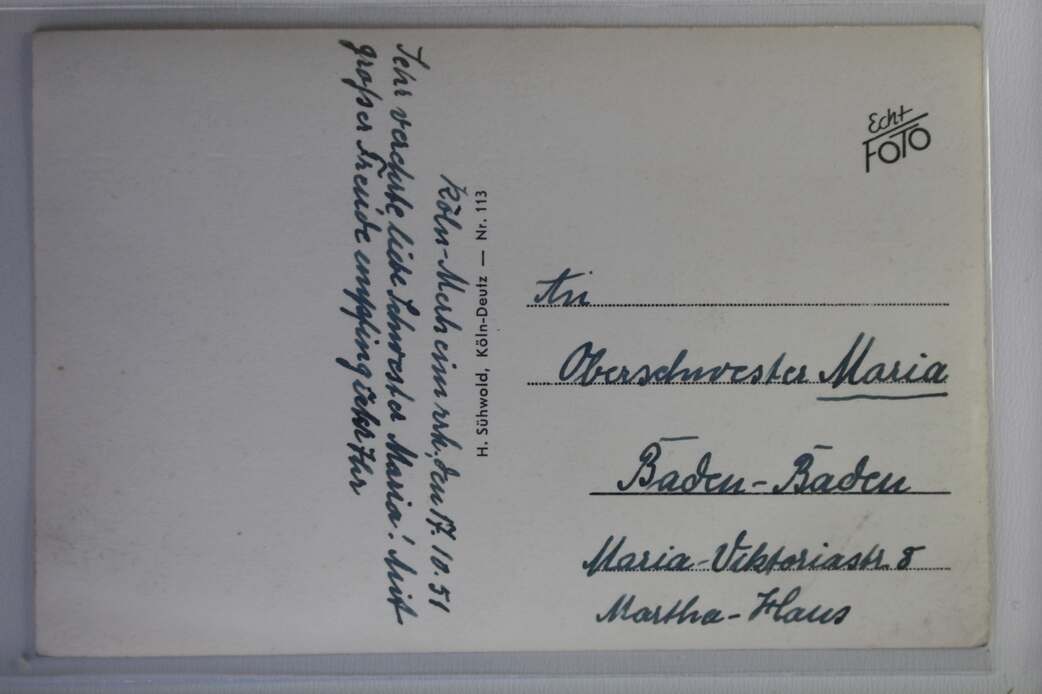 Köln-Merheim rrh, den 17. 10. 51
Sehr verehrte, liebe Schwester Maria! Mit
großer Freude empfing ich Ihr
H. Sühwold, Köln-Deutz — Nr. 113
Echt
FOTO
An
Oberschwester Maria
Baden-Baden
Maria-Viktoriastr. 8
Martha-Haus